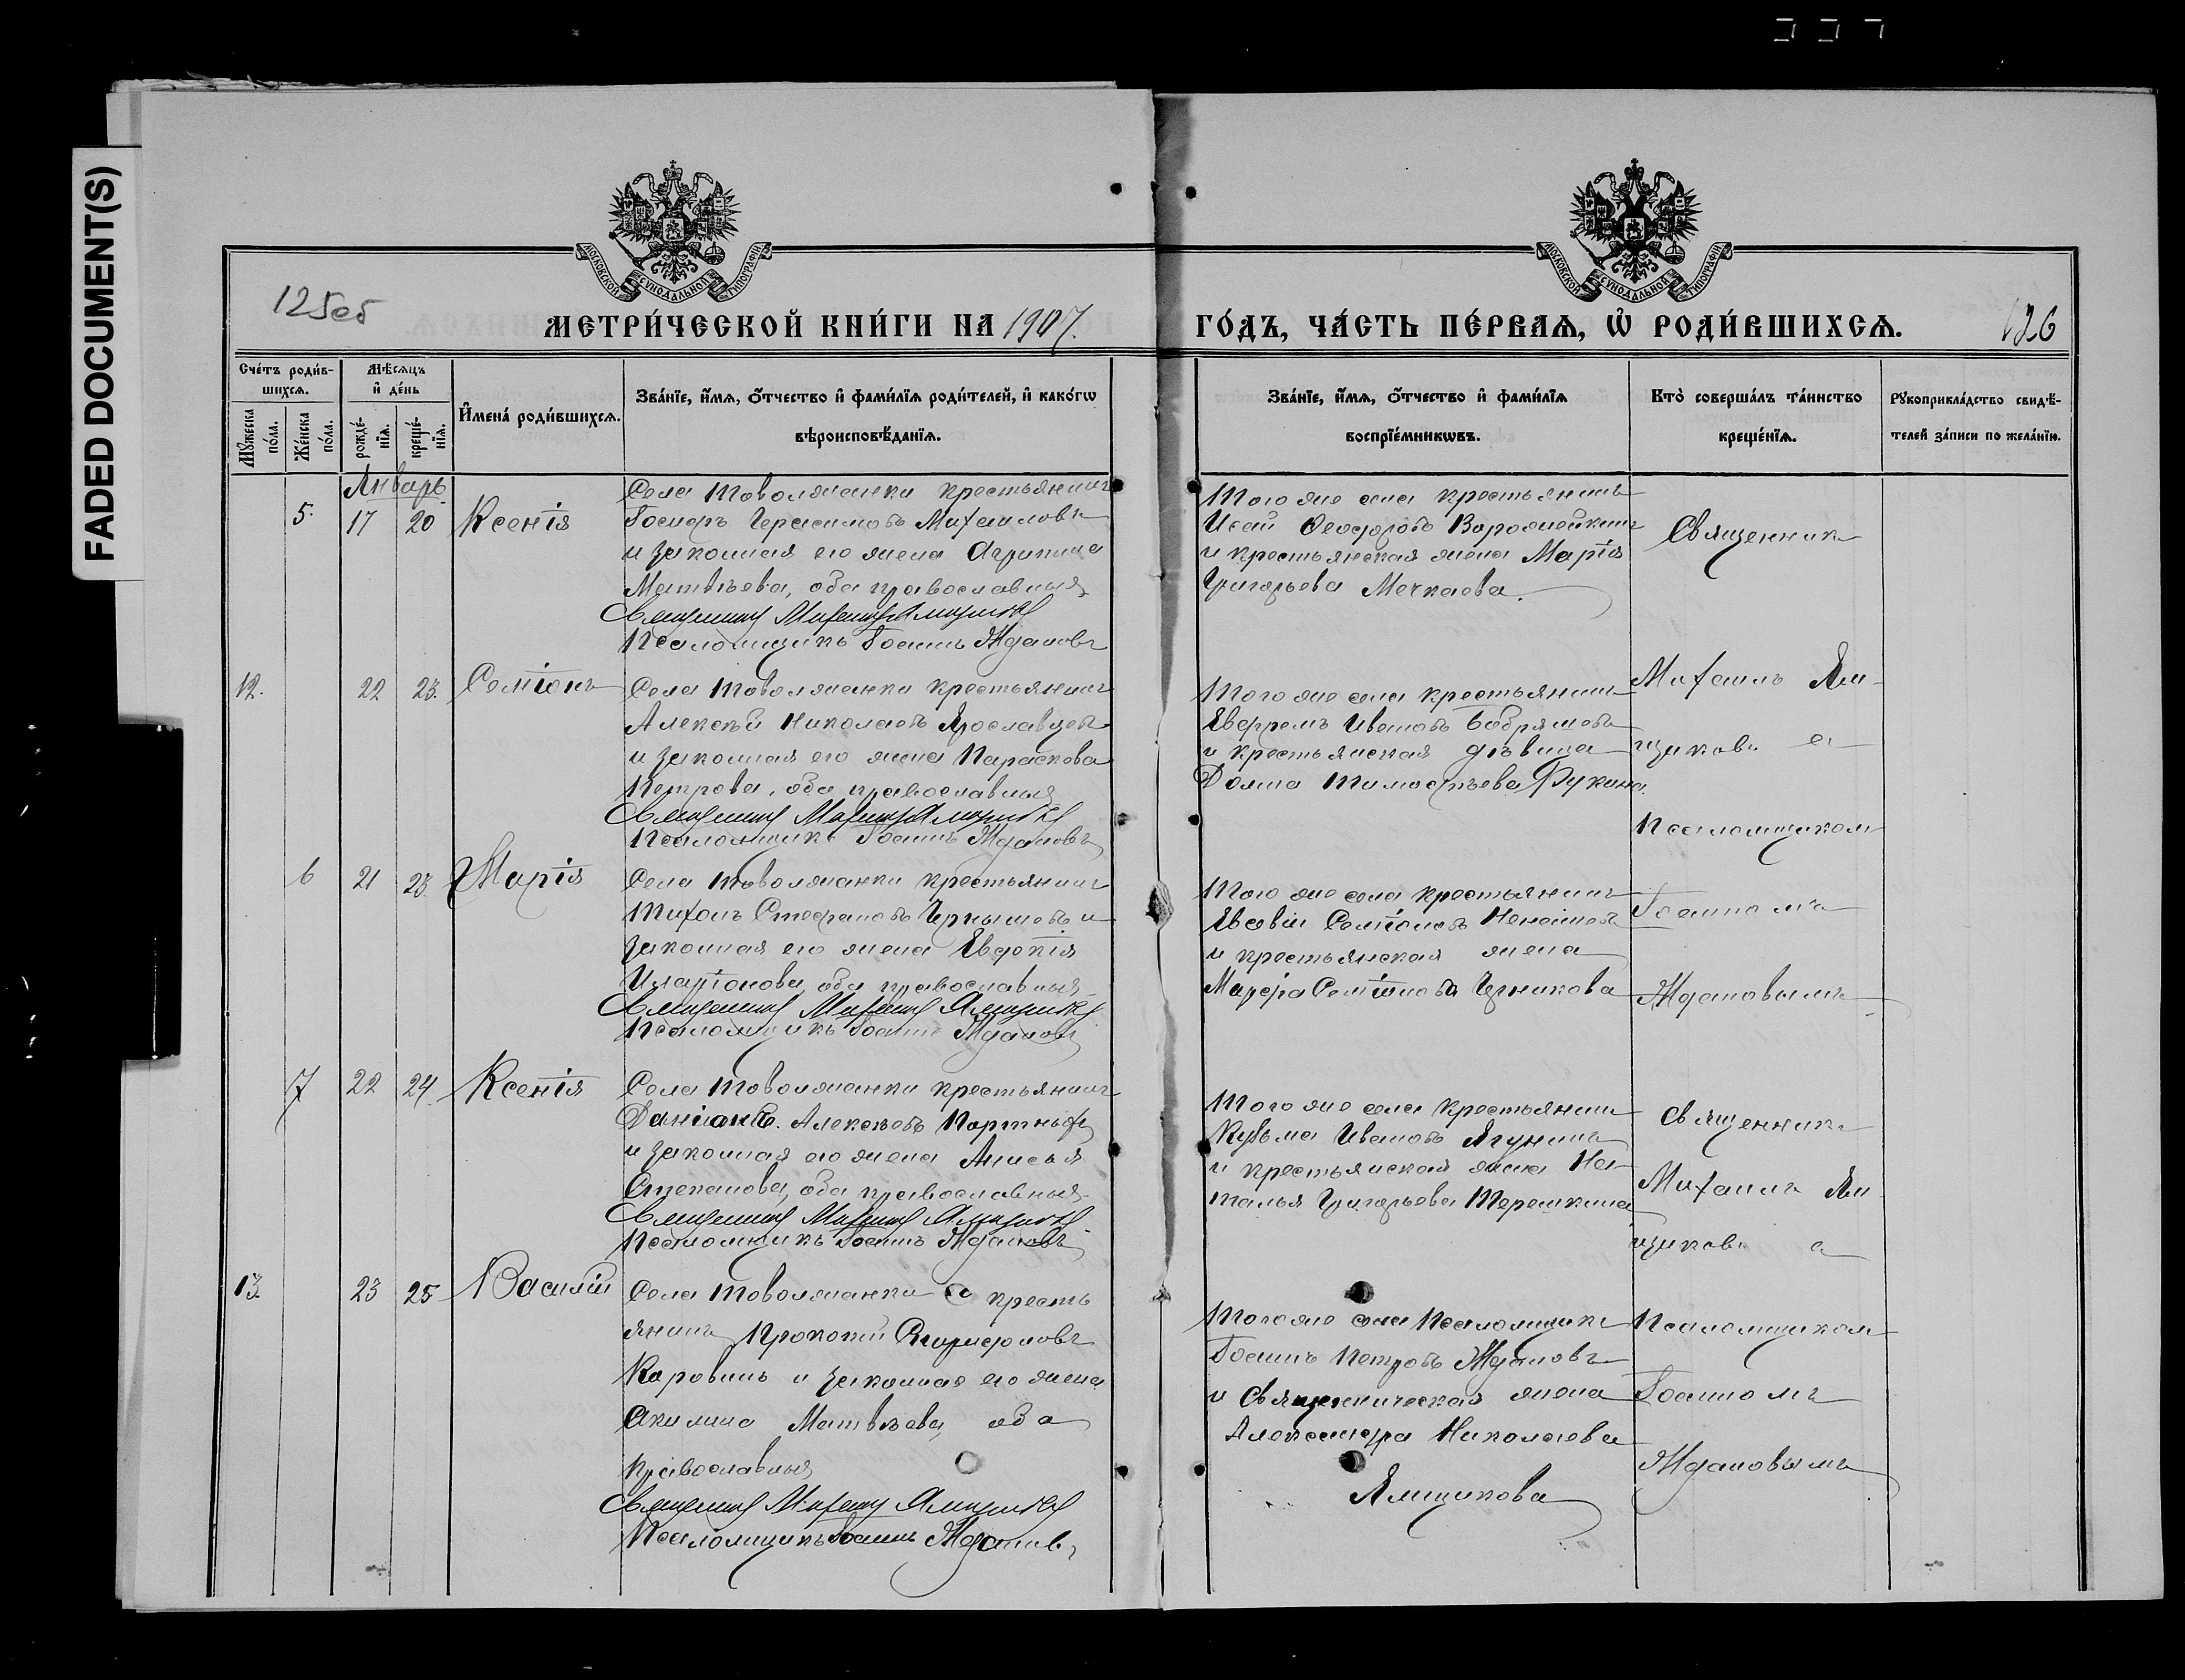 FADED DOCUMENT(S)
МОСКОВСКОЙ СУНОДАЛЬНОЙ ТИПОГРАФІИ
МОСКОВСКОЙ СУНОДАЛЬНОЙ ТИПОГРАФІИ
125об
МЕТРИ́ЧЕСКОЙ КНИ́ГИ НА 1907.
ГО́ДЪ, ЧА́СТЬ ПЕ́РВАѦ, Ѡ҆ РОДИ́ВШИХСѦ.
126
Сче́тъ роди́в-
шихсѧ.
Мꙋ́жеска
по́ла.
Же́нска
по́ла.
Мѣ́сѧцъ
и҆ де́нь
рожде́-
нїѧ.
креще́-
нїѧ.
И҆мена̀ роди́вшихсѧ.
Зва́нїе, и҆́мѧ, ѻ҆́тчество и҆ фами́лїѧ роди́телей, и҆ како́гѡ
вѣроисповѣ́данїѧ.
Зва́нїе, и҆́мѧ, ѻ҆́тчество и҆ фами́лїѧ
воспрїе́мникѡвъ.
Кто̀ соверша́лъ та́инство
креще́нїѧ.
Рꙋкоприкла́дство свидѣ́-
телей за́писи по жела́нїю.
Январь
5. 17 20 Ксенія
Села Товолжанки крестьянинъ
Іосифъ Герасимовъ Михаиловъ
и законная его жена Агрипина
Матвѣева, оба православныя
Священникъ Михаилъ Ямщиковъ
Псаломщикъ Іоаннъ Ждановъ
Того же села крестьянинъ
Исай Феодоровъ
и крестьянская жена Марія
Григорьева Мечкаева.
Священникъ
12. 22 23. Семіонъ
Села Товолжанки крестьянинъ
Алексѣй Николаевъ Ярославцевъ
и законная его жена Параскева
Петрова, оба православныя
Священникъ Михаилъ Ямщиковъ
Псаломщикъ Іоаннъ Ждановъ
Того же села крестьянинъ
Евфремъ Ивановъ
и крестьянская дѣвица
Домна Тимофѣева Фукина.
Михаилъ Ям-
щиковъ а
Псаломщикомъ
6 21 23. Марія
Села Товолжанки крестьянинъ
Тихонъ Стефановъ Чернышевъ и
законная его жена Евдокія
Иларіонова, оба православныя
Священникъ Михаилъ Ямщиковъ
Псаломщикъ Іоаннъ Ждановъ
Того же села крестьянинъ
Евсевій Семіоновъ
и крестьянская жена
Марфа Семіонова Черникова
Іоанномъ
Ждановымъ
7 22 24. Ксенія
Села Товолжанки крестьянинъ
Даніанъ. Алексѣевъ Портныхъ
и законная его жена Анисья
Степанова, оба православныя
Священникъ Михаилъ Ямщиковъ
Псаломщикъ Іоаннъ Ждановъ
Того же села крестьянинъ
Кузьма Ивановъ Ягунинъ
и крестьянская жена На-
талья Григорьева Терешкина
Священникъ
Михаилъ Ям
щиковъ а
13. 23 25 Василій
Села Товолжанки кресть
янинъ Прокопій
Коровинъ и законная его жена
Акилина Матвѣева, оба
православныя
Священникъ Михаилъ Ямщиковъ
Псаломщикъ Іоаннъ Ждановъ
Того же села Псаломщикъ
Іоаннъ Петровъ Ждановъ
и Священническая жена
Александра Николаева
Ямщикова
Псаломщикомъ
Іоанномъ
Ждановымъ